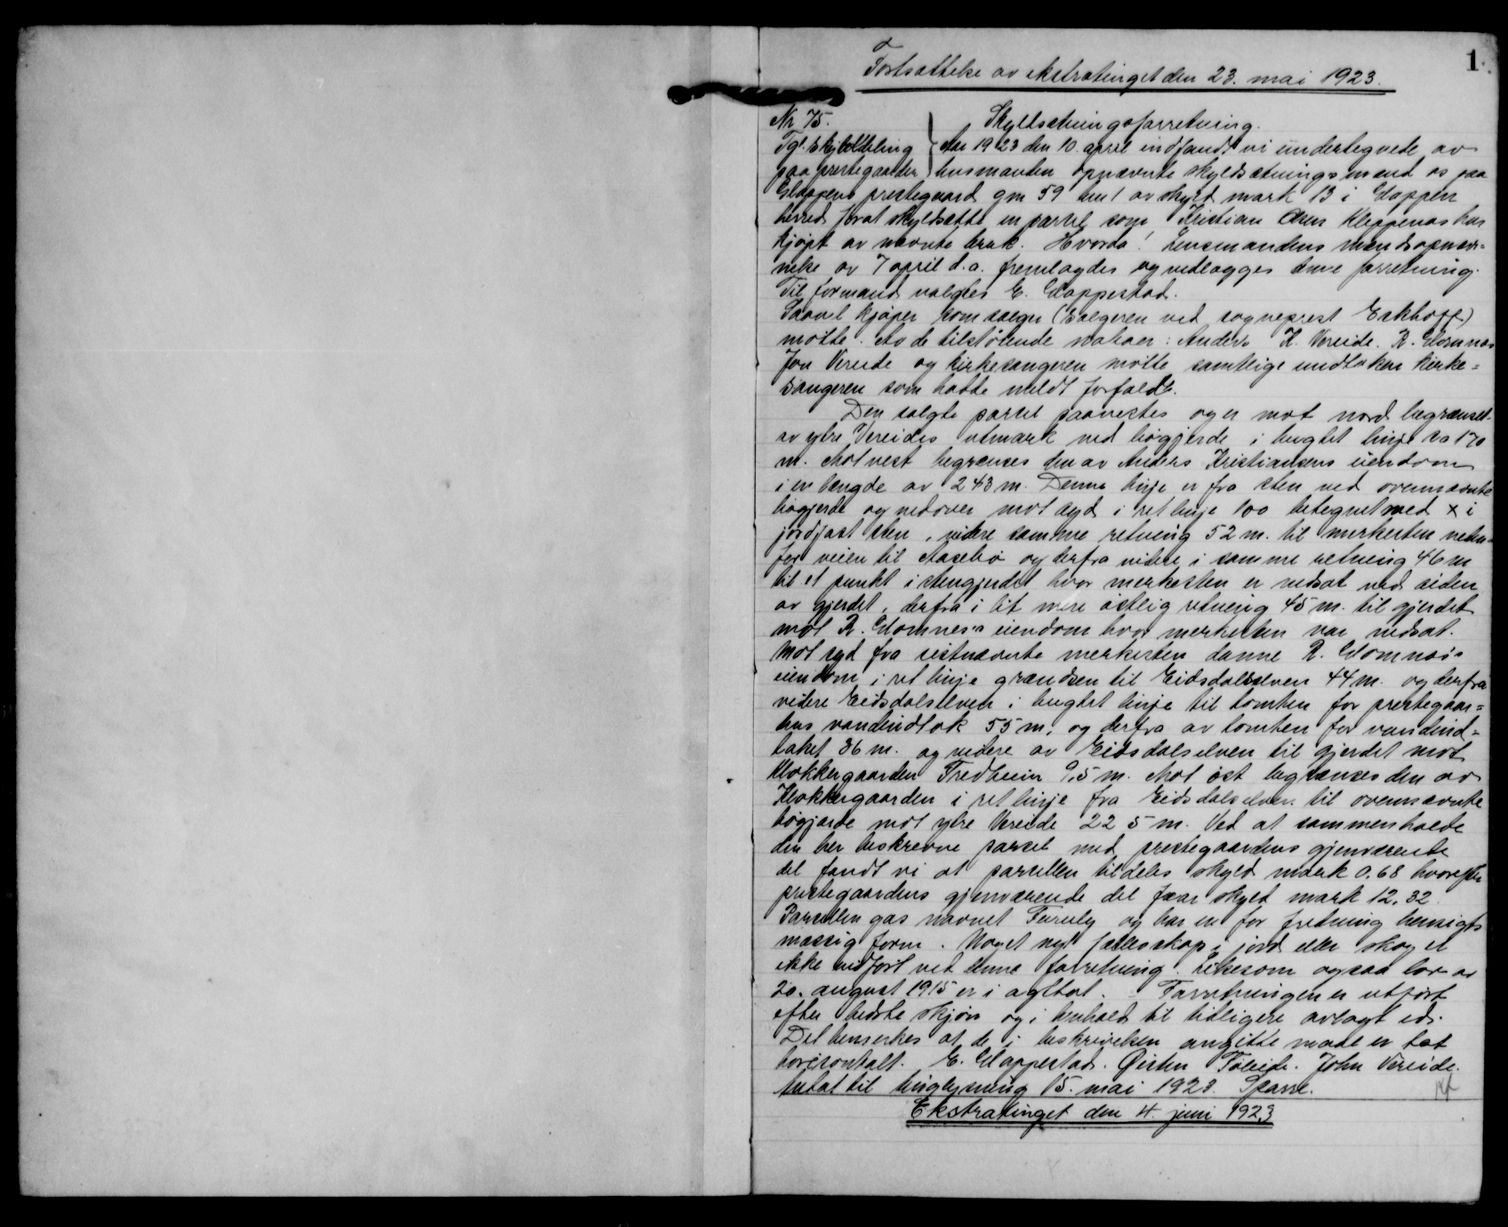 1.
Fortsættelse av ekstratinget den 23. mai 1923.
Nr 75. Skyldsætningsforretning.
Tgl. skylddeling Aar 1923 den 10. april indfandt vi undertegnede av
paa prestegaarden lensmanden opnævnte skyldsætningsmænd os paa
Gloppens prestegaard gm 59 bnr 1 av skyld mark 13 i Gloppen
herred forat skyldsætte en parsel som Kristian Olsen Kleppenæs har
kjøpt av nævnte bruk. Hvorda! Lensmandens mandsopnæv=
nelse av 7 april d.a. fremlagdes og vedlægges denne forretning.
Til formand valgtes E. Gloppestad.
Saavel kjøper som sælger (Sælgeren ved sogneprest Eckhoff)
møtte. Av de tilstøtende naboer: Anders K. Vereide. R. Glomnæs
Jon Vereide og kirkesangeren møtte samtlige undtaken kirke=
sangeren som hadde meldt forfald.
Den solgte parsel paavistes og er mot nord begrænset
av ytre Vereides utmark ved bøgjerde i bugtet linje ca 170
m. Mot vest begrænses den av Anders Kristiansens eiendom
i en længde av 243 m. Denne linje er fra sten ved ovennævnte
bøgjerde og nedover mot syd i ret linje 100 betegnet med x i
jordfast sten, videre samme retning 52 m. til merkesten neden=
for veien til Aasebø og derfra videre i samme retning 46 m
til et punkt i stengjerdet hvor merkesten er nedsat ved siden
av gjerdet, derfra i lit mere østlig retning 45 m. til gjerdet
mot R. Glomnes's eiendom hvor merkesten var nedsat.
Mot syd fra sistnævnte merkesten danne R. Glomnæs's
eiendom i ret linje grændsen til Eidsdalselven 44 m. og derfra
videre Eidsdalselven i bugtet linje til tomten for prestegaar=
ens vandindtak 55 m, og derfra av tomten for vandind=
taket 36 m. og videre av Eidsdalselven til gjerdet mot
Klokkergaarden Fredheim 9,5 m. Mot øst begrænses den av
Klokkergaarden i ret linje fra Eidsdalselven til ovennævnte
bøgjærde mot ytre Vereide 225 m. Ved at sammenholde
den her beskrevne parsel med prestegaardens gjenværende
del fandt vi at parsellen tildeles skyld mark 0.68 hvorefter
prestegaardens gjenværende del faar skyld mark 12,32.
Parsellen gas navnet Furuly og har en for fredning hensigts
mæssig form. Noget nyt fællesskap i jord eller skog er
ikke indført ved denne forretning. Likesom ogsaa lov av
20. august 1915 er i agttat. Forretningen er utført
efter bedste skjøn og i henhold til tidligere avlagt ed.
Det bemerkes at de i beskrivelsen angitte maal er tat
horisontalt. E. Gloppestad. Østen Føleide. John Vereide.
Mottat til tinglysning 15. mai 1923. Sparre.
Ekstratinget den 4. juni 1923